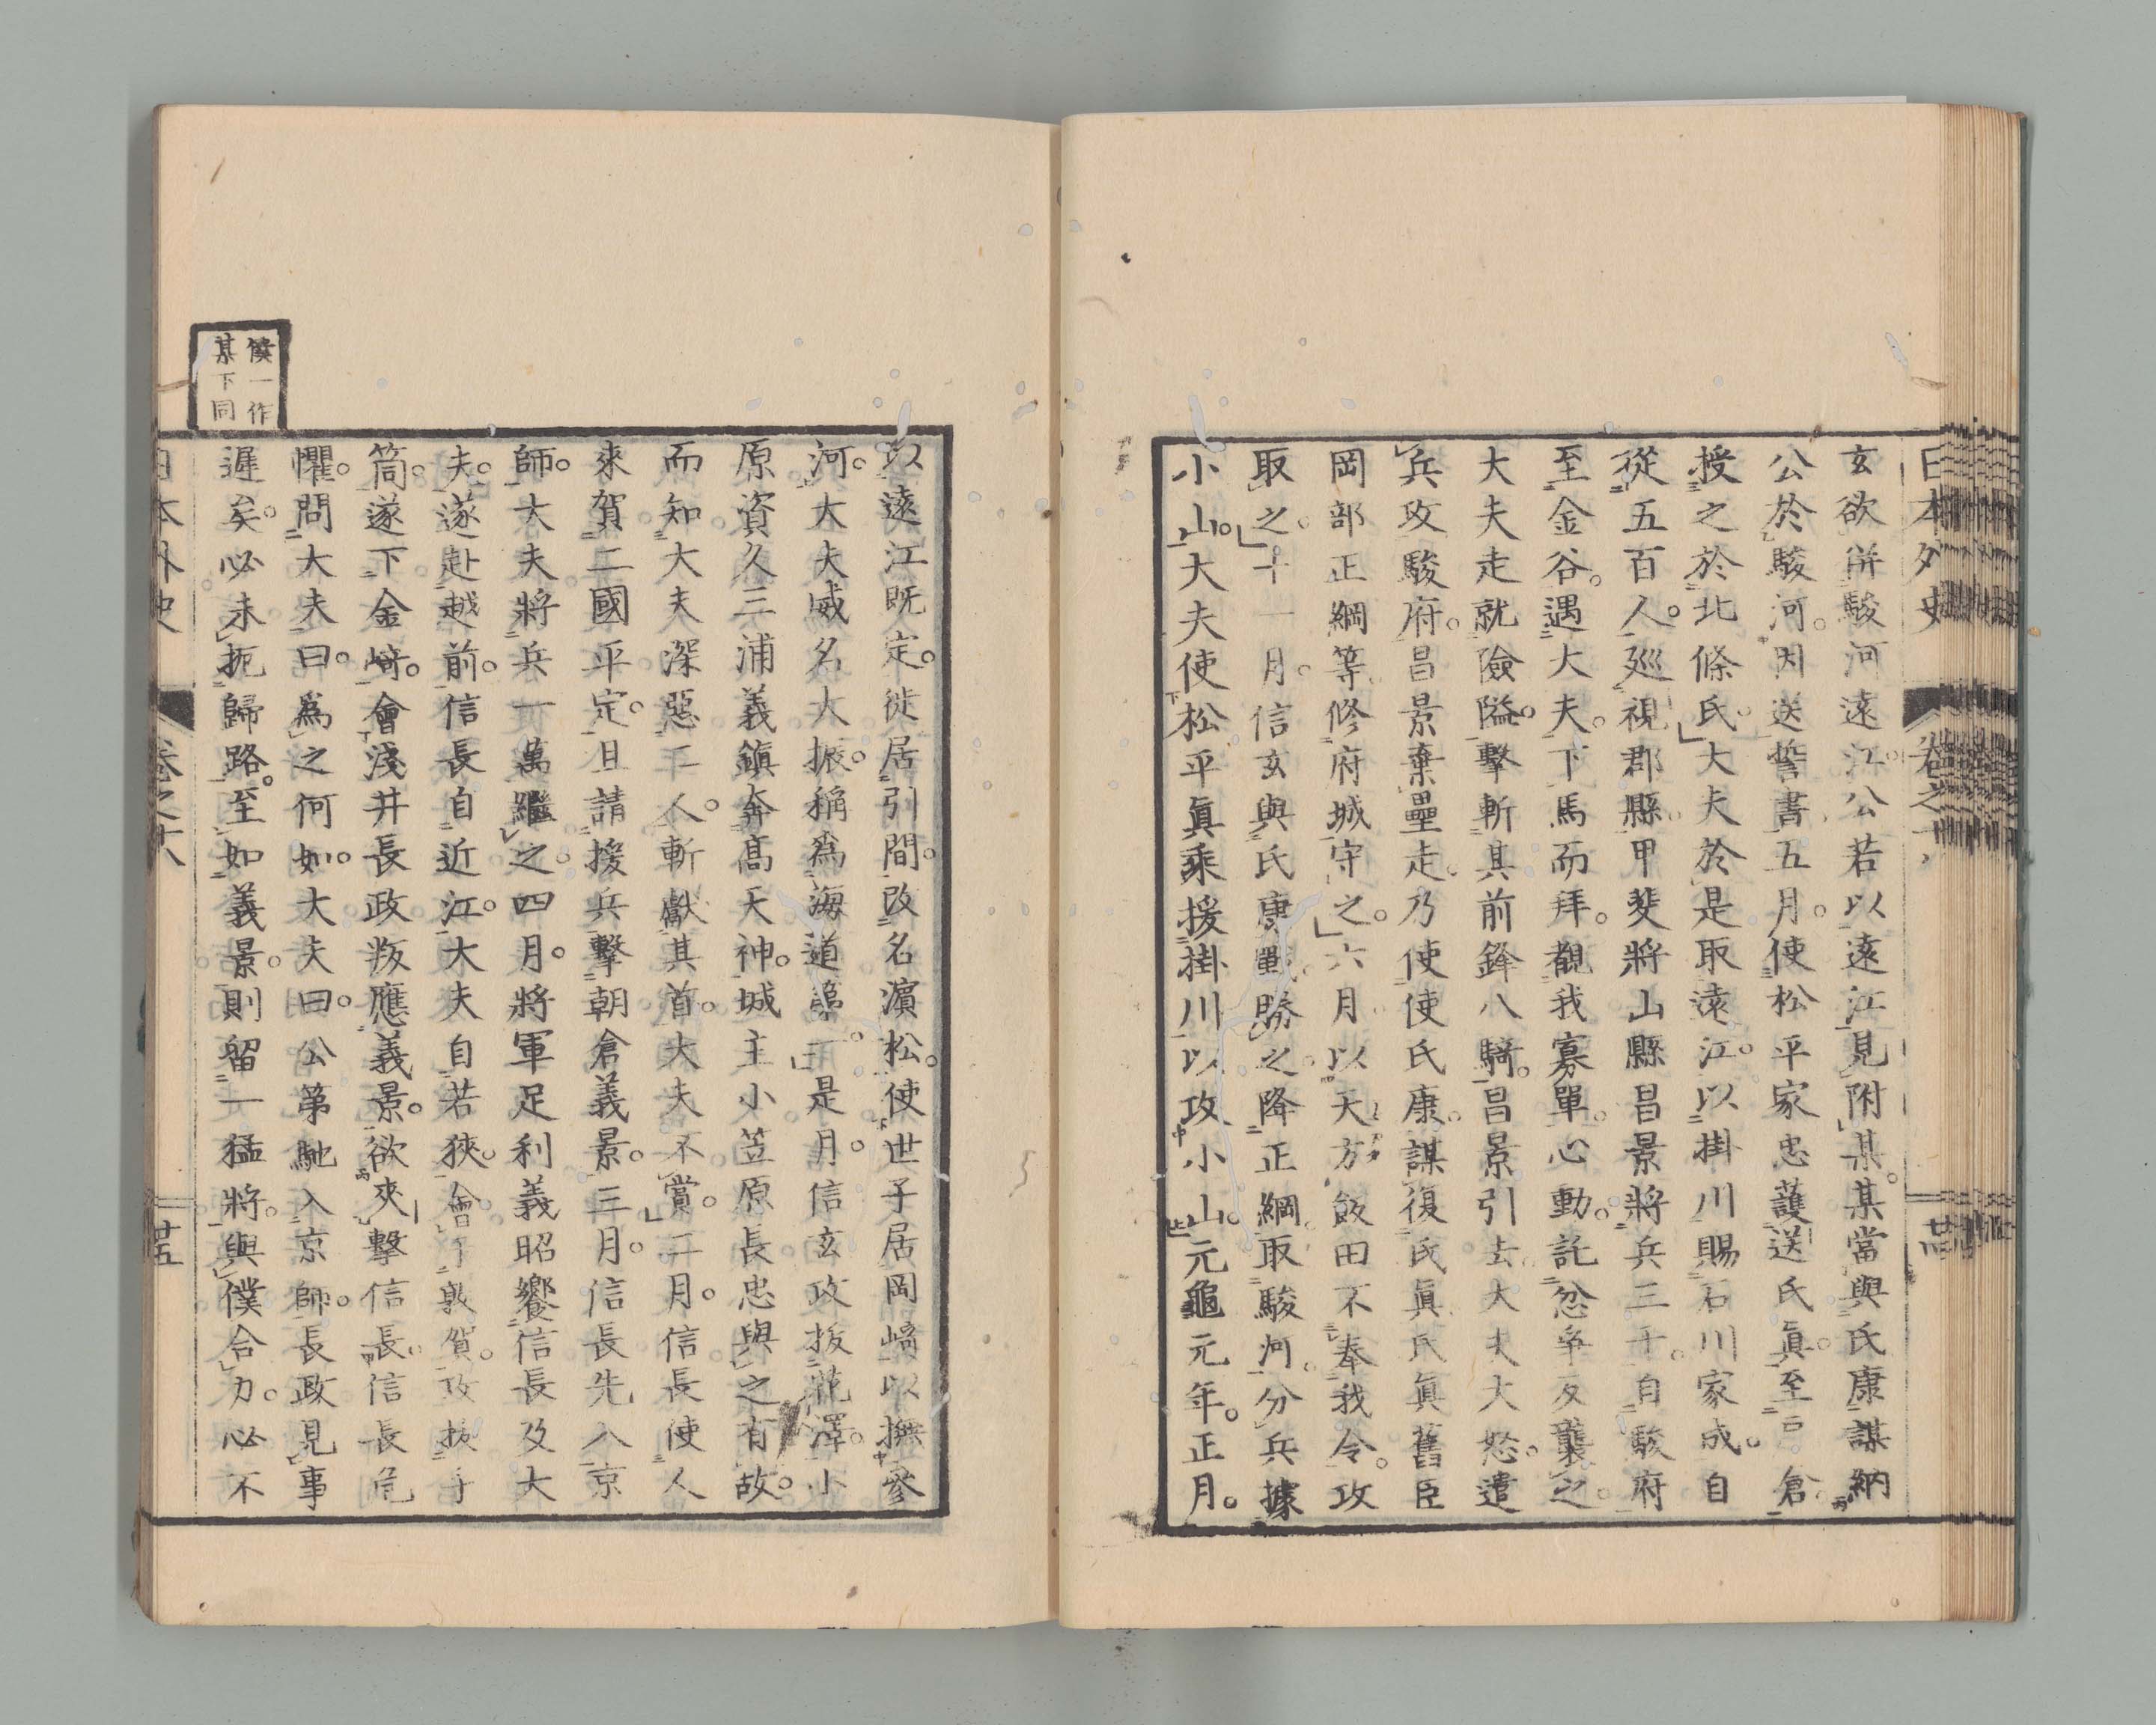 日本外史
卷之十
廿四
玄欲併駿河遠江公若以遠江見附某某當與氏康謀納
公於駿河。因送誓書五月。使松平家忠護送氏眞。至 倉
授之於北條氏。大夫於是取遠江。以掛川賜石川家成。自
從五百人。廵視郡縣甲斐將山縣昌景將兵三千。自駿府
至金谷。遇大夫。下馬而拜。覩我寡單。心動。託忿爭反襲之。
大夫走就險隘。擊斬其前鋒八騎。昌景引去大夫大怒。遣
兵攻駿府。昌景棄壘走。乃使使氏康。謀復氏眞氏眞舊臣
岡部正綱等修府城守之。六月以天方飯田不奉我令。攻
取之。十一月。信玄與氏康戰。勝之。降正綱。取駿河。分兵據
小山。大夫使松平眞乘援掛川以攻小山。元龜元年。正月。
以遠江既定。徙居引間。改名濵松。使世子居岡﨑以撫參
河。大夫威名大振。稱爲海道第一。是月。信玄攻拔花澤。小
原資久三浦義鎭奔髙天神。城主小笠原長忠與之有故。
而知大夫深惡二人。斬獻其首。大夫不賞。二月。信長使人
來賀二國平定。且請援兵擊朝倉義景。三月。信長先入京
師。大夫將兵一萬繼之。四月。將軍足利義昭饗信長及大
夫。遂赴越前。信長自近江。大夫自若狹。會于敦賀。攻拔手
筒。遂下金﨑。會淺井長政叛應義景。欲夾擊信長。信長危
懼。問大夫。曰。爲之何如。大夫曰。公第馳入京師。長政見事
遲矣。必未扼歸路。至如義景。則留一猛將。與僕合力。必不
僕一作
某下同
日本外史
卷之十八
廿五